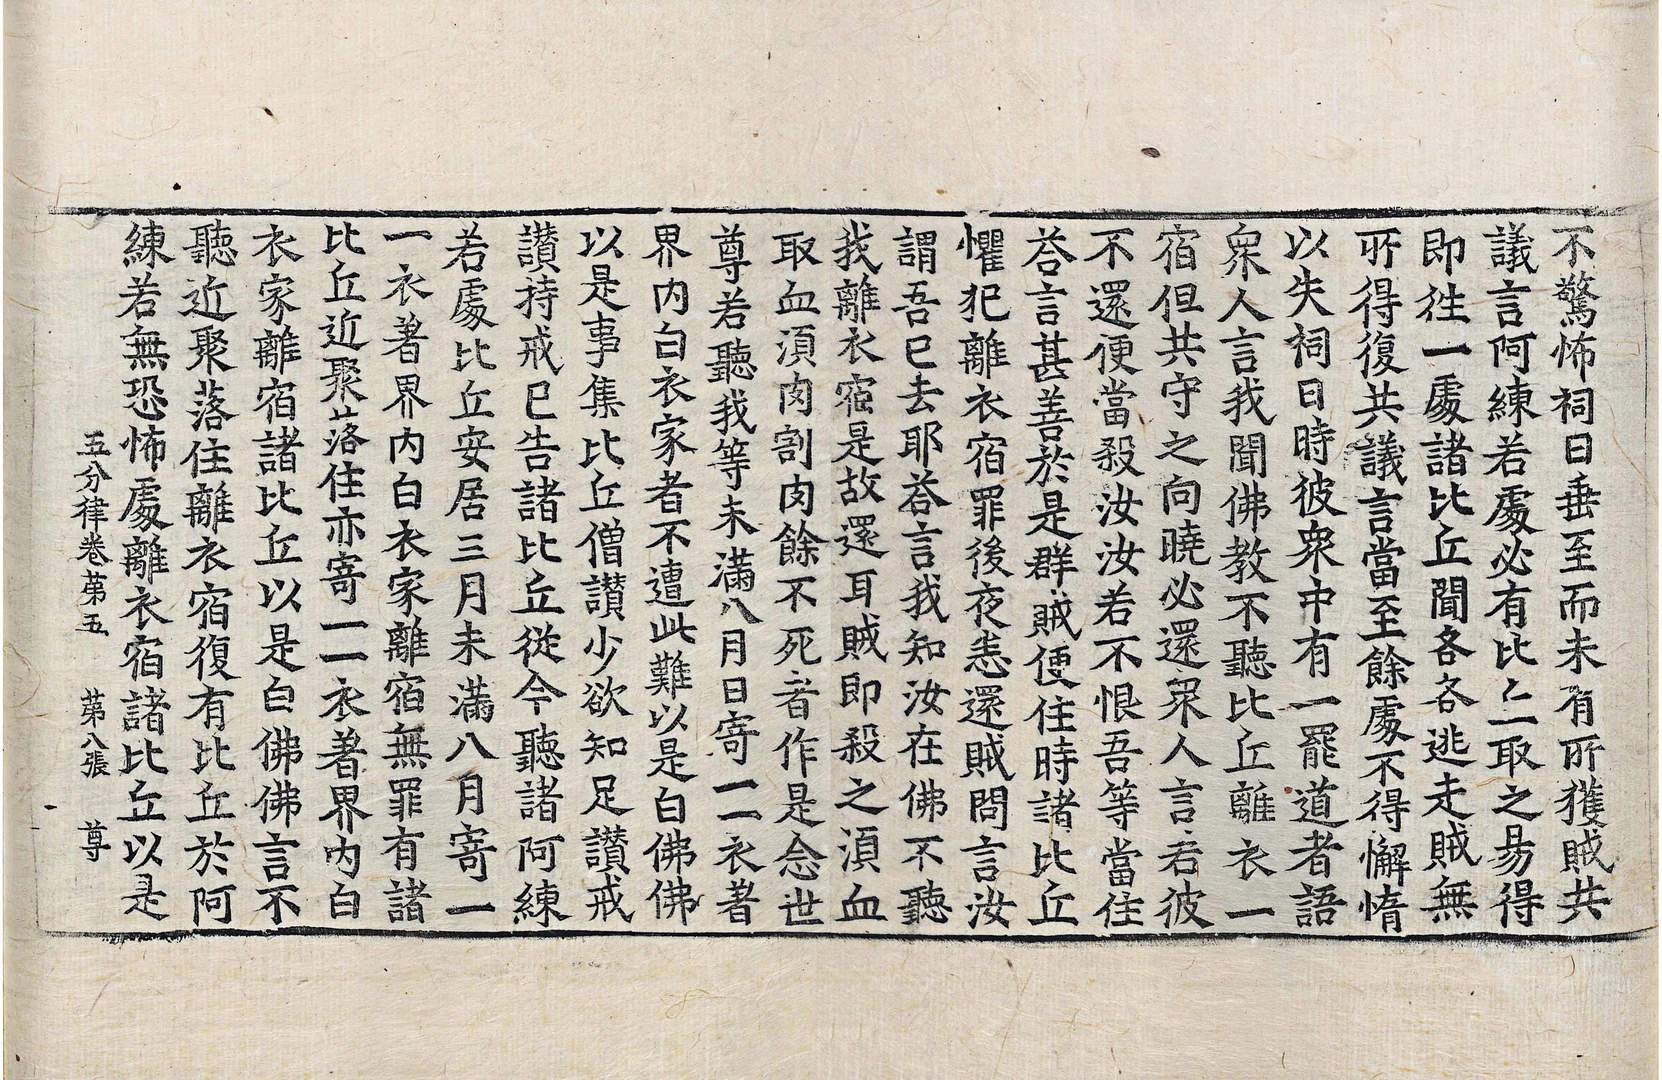 不驚怖祠日垂至而未有所獲賊共
議言阿練若處必有比丘取之易得
即徃一處諸比丘聞各各逃走賊無
所得復共議言當至餘處不得懈惰
以失祠日時彼衆中有一罷道者語
衆人言我聞佛教不聽比丘離衣一
宿但共守之向曉必還衆人言若彼
不還便當殺汝汝若不恨吾等當住
荅言甚善於是群賊便住時諸比丘
懼犯離衣宿罪後夜悉還賊問言汝
謂吾已去耶荅言我知汝在佛不聽
我離衣宿是故還耳賊即殺之湏血
取血湏肉割肉餘不死者作是念世
尊若聽我等未滿八月日寄一一衣著
界内白衣家者不遭此難以是白佛佛
以是事集比丘僧讃少欲知足讃戒
讃持戒已告諸比丘從今聽諸阿練
若處比丘安居三月未滿八月寄一
一衣著界内白衣家離宿無罪有諸
比丘近聚落住亦寄一一衣著界内白
衣家離宿諸比丘以是白佛佛言不
聽近聚落住離衣宿復有比丘於阿
練若無恐怖處離衣宿諸比丘以是
五分律卷苐五　苐八張　尊